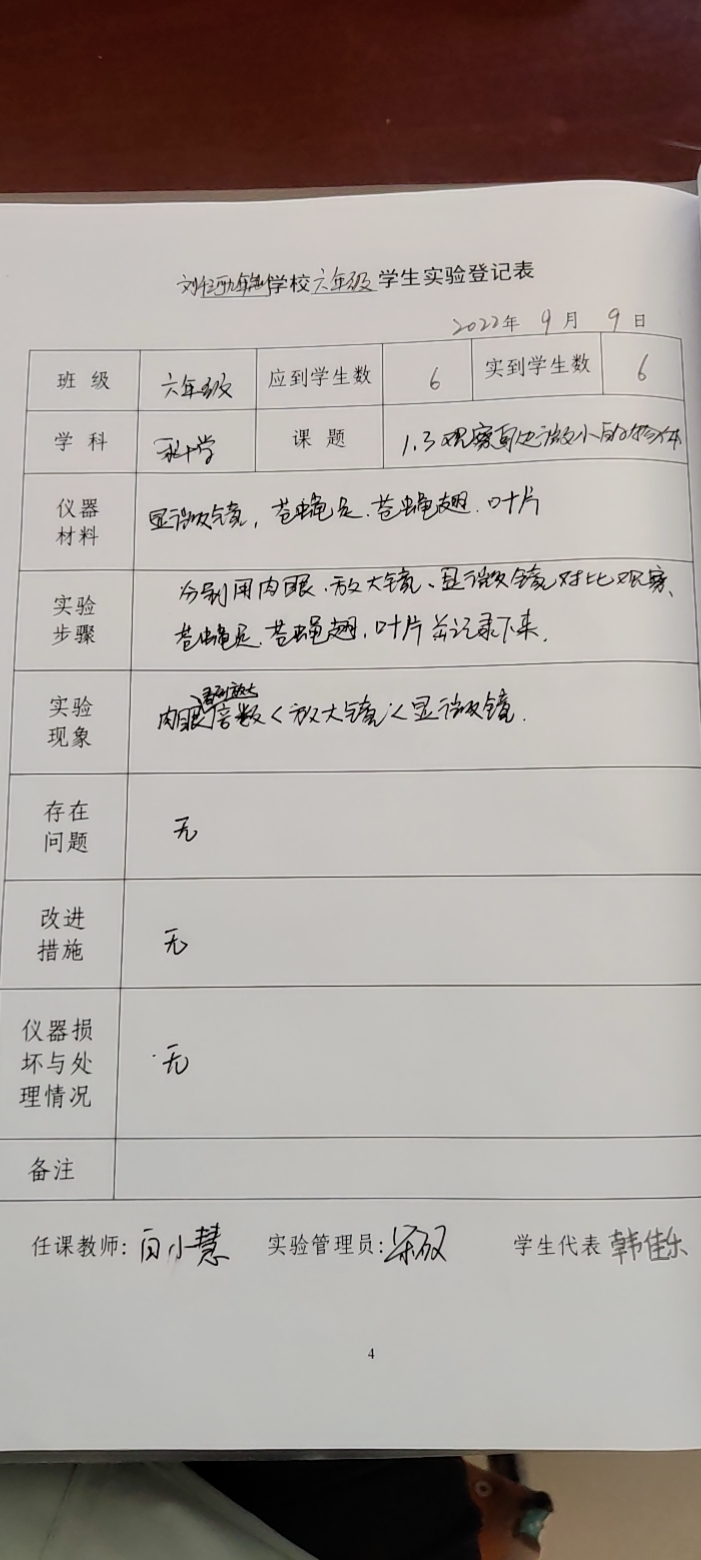 学校六年级学生实验登记表
2022年 9月 9日
班 级 六年级 应到学生数 6 实到学生数 6
学 科 科学 课 题 1.3观察身边微小的物体
仪器
材料
显微镜，苍蝇足.苍蝇翅.叶片
实验
步骤
分别用肉眼.放大镜、显微镜对比观察、
苍蝇足.苍蝇翅.叶片并记录下来.
实验
现象
看到放大
肉眼倍数<放大镜<显微镜.
存在
问题
无
改进
措施
无
仪器损
坏与处
理情况
无
备注
任课教师: 白小慧 实验管理员: 学生代表 韩佳乐
4